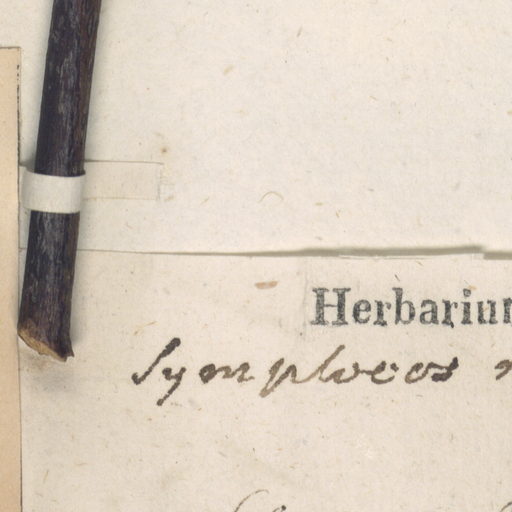 Herbariu
Symplocos